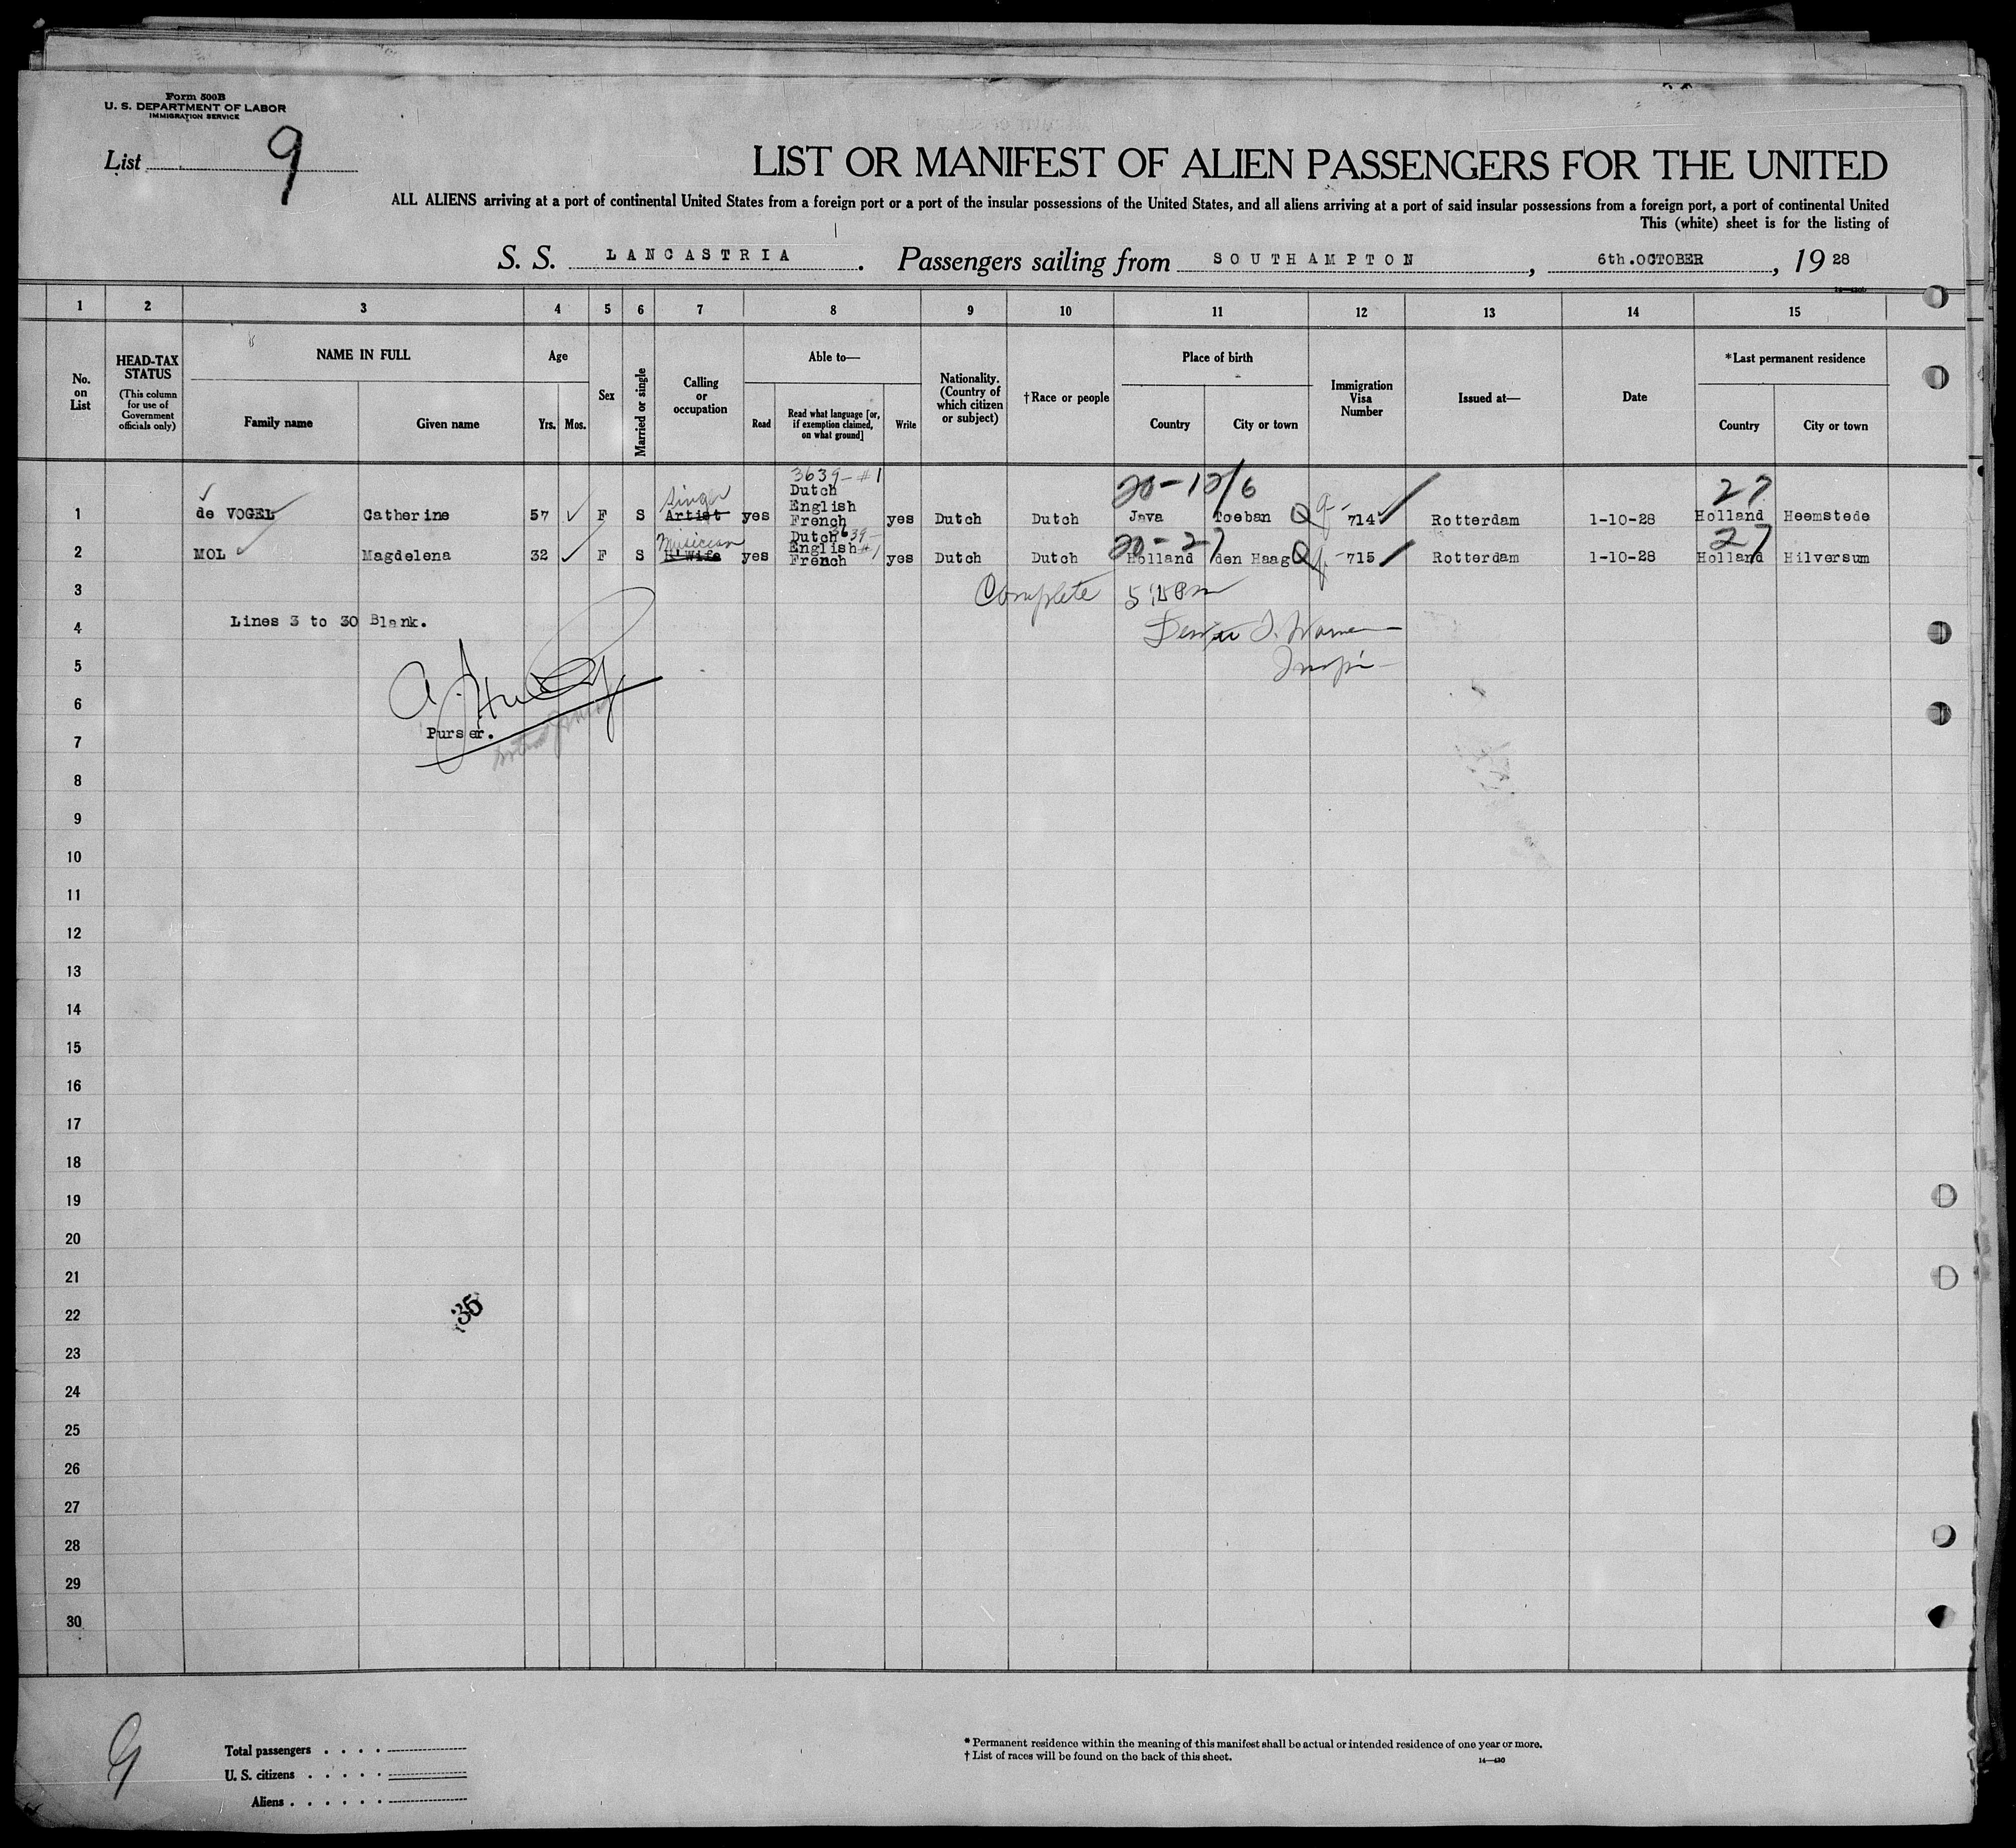 Form 500B
U. S. DEPARTMENT OF LABOR
IMMIGRATION SERVICE
List 9
LIST OR MANIFEST OF ALIEN PASSENGERS FOR THE UNITED
ALL ALIENS arriving at a port of continental United States from a foreign port or a port of the insular possessions of the United States, and all aliens arriving at a port of said insular possessions from a foreign port, a port of continental United
This (white) sheet is for the listing of
S. S. LANCASTRIA. Passengers sailing from SOUTHAMPTON, 6th.OCTOBER, 19 28
1 2 3 4 5 6 7 8 9 10 11 12 13 14 15
No. on List
HEAD-TAX STATUS
(This column for use of Government officials only)
NAME IN FULL
Family name Given name
Age
Yrs. Mos.
Sex
Married or single
Calling or occupation
Able to—
Read
Read what language [or, if exemption claimed, on what ground]
Write
Nationality. (Country of which citizen or subject)
†Race or people
Place of birth
Country City or town
Immigration Visa Number
Issued at—
Date
*Last permanent residence
Country City or town
3639-#1
20-12/6 27
1 de VOGEL Catherine 57 F S Singer Artist yes Dutch English French yes Dutch Dutch Java Toeban 714 Rotterdam 1-10-28 Holland Heemstede
3639-#1
20-27 27
2 MOL Magdelena 32 F S Musician H'Wife yes Dutch English French yes Dutch Dutch Holland den Haag 715 Rotterdam 1-10-28 Holland Hilversum
3 Complete
4 Lines 3 to 30 Blank.
5
6
Purser.
7
8
9
10
11
12
13
14
15
16
17
18
19
20
21
22
35
23
24
25
26
27
28
29
30
9
Total passengers
U. S. citizens
Aliens
* Permanent residence within the meaning of this manifest shall be actual or intended residence of one year or more.
† List of races will be found on the back of this sheet.
14—430